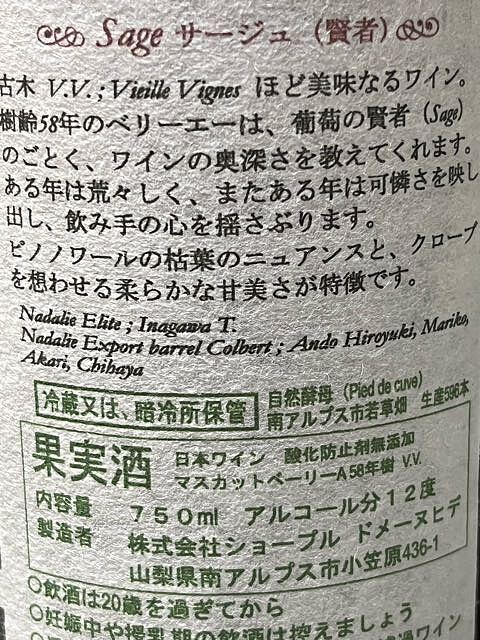 Sage サージュ（賢者）
古木 V.V. ; Vieille Vignes ほど美味なるワイン。
樹齢58年のベリーエーは、葡萄の賢者（Sage）
のごとく、ワインの奥深さを教えてくれます。
ある年は荒々しく、またある年は可憐さを映し
出し、飲み手の心を揺さぶります。
ピノノワールの枯葉のニュアンスと、クローブ
を想わせる柔らかな甘美さが特徴です。
Nadalie Elite ; Inagawa T.
Nadalie Export barrel Colbert ; Ando Hiroyuki, Mariko,
Akari, Chihaya
冷蔵又は、暗冷所保管
自然酵母（Pied de cuve）
南アルプス市若草畑 生産596本
果実酒
日本ワイン 酸化防止剤無添加
マスカットベーリーA58年樹 V.V.
内容量 750ml アルコール分12度
製造者 株式会社ショープル ドメーヌヒデ
山梨県南アルプス市小笠原436-1
○飲酒は20歳を過ぎてから
○妊娠中や授乳期の飲酒は控えましょう
ワイン